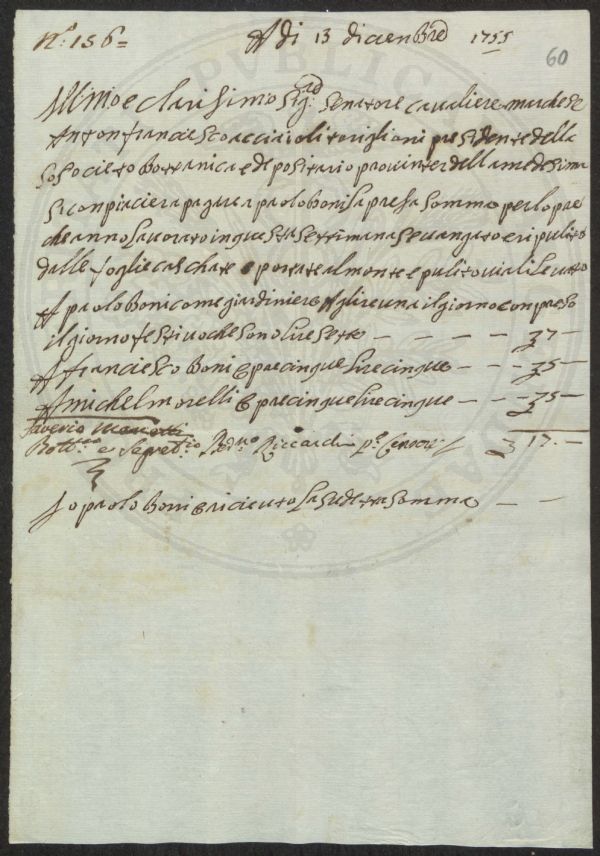 N.º 156=
A di 13 dicenbre 1755
60
Illmo e clarisimo Sig.re Senatore cavaliere marchese
Antonfranciesco acciaioli torigliani presidente della
Socicieta Bottanica e depositario provinter della medesima
Siconpiaciera pagare a paolo boni la presa somma per lopre
che anno lavorato in questa Settimana Sevangato e ripulito
dalle foglie caschate e portate al monte e pulito viali levato
A paolo Boni come giardiniere A lire una il giorno conpreso
il giorno festivo che sono lire Sette — — — — — 7 —
A franciesco Boni opre cinque lire cinque — — — 5 —
A michel morelli opre cinque lire cinque — — — 5 —
Saverio Manetti
Bott.co e Segret.rio Ber.no Riccardi p.o Censore 17. —
Io paolo Boni o riceuto la sudetta somma — —
PUBLIC